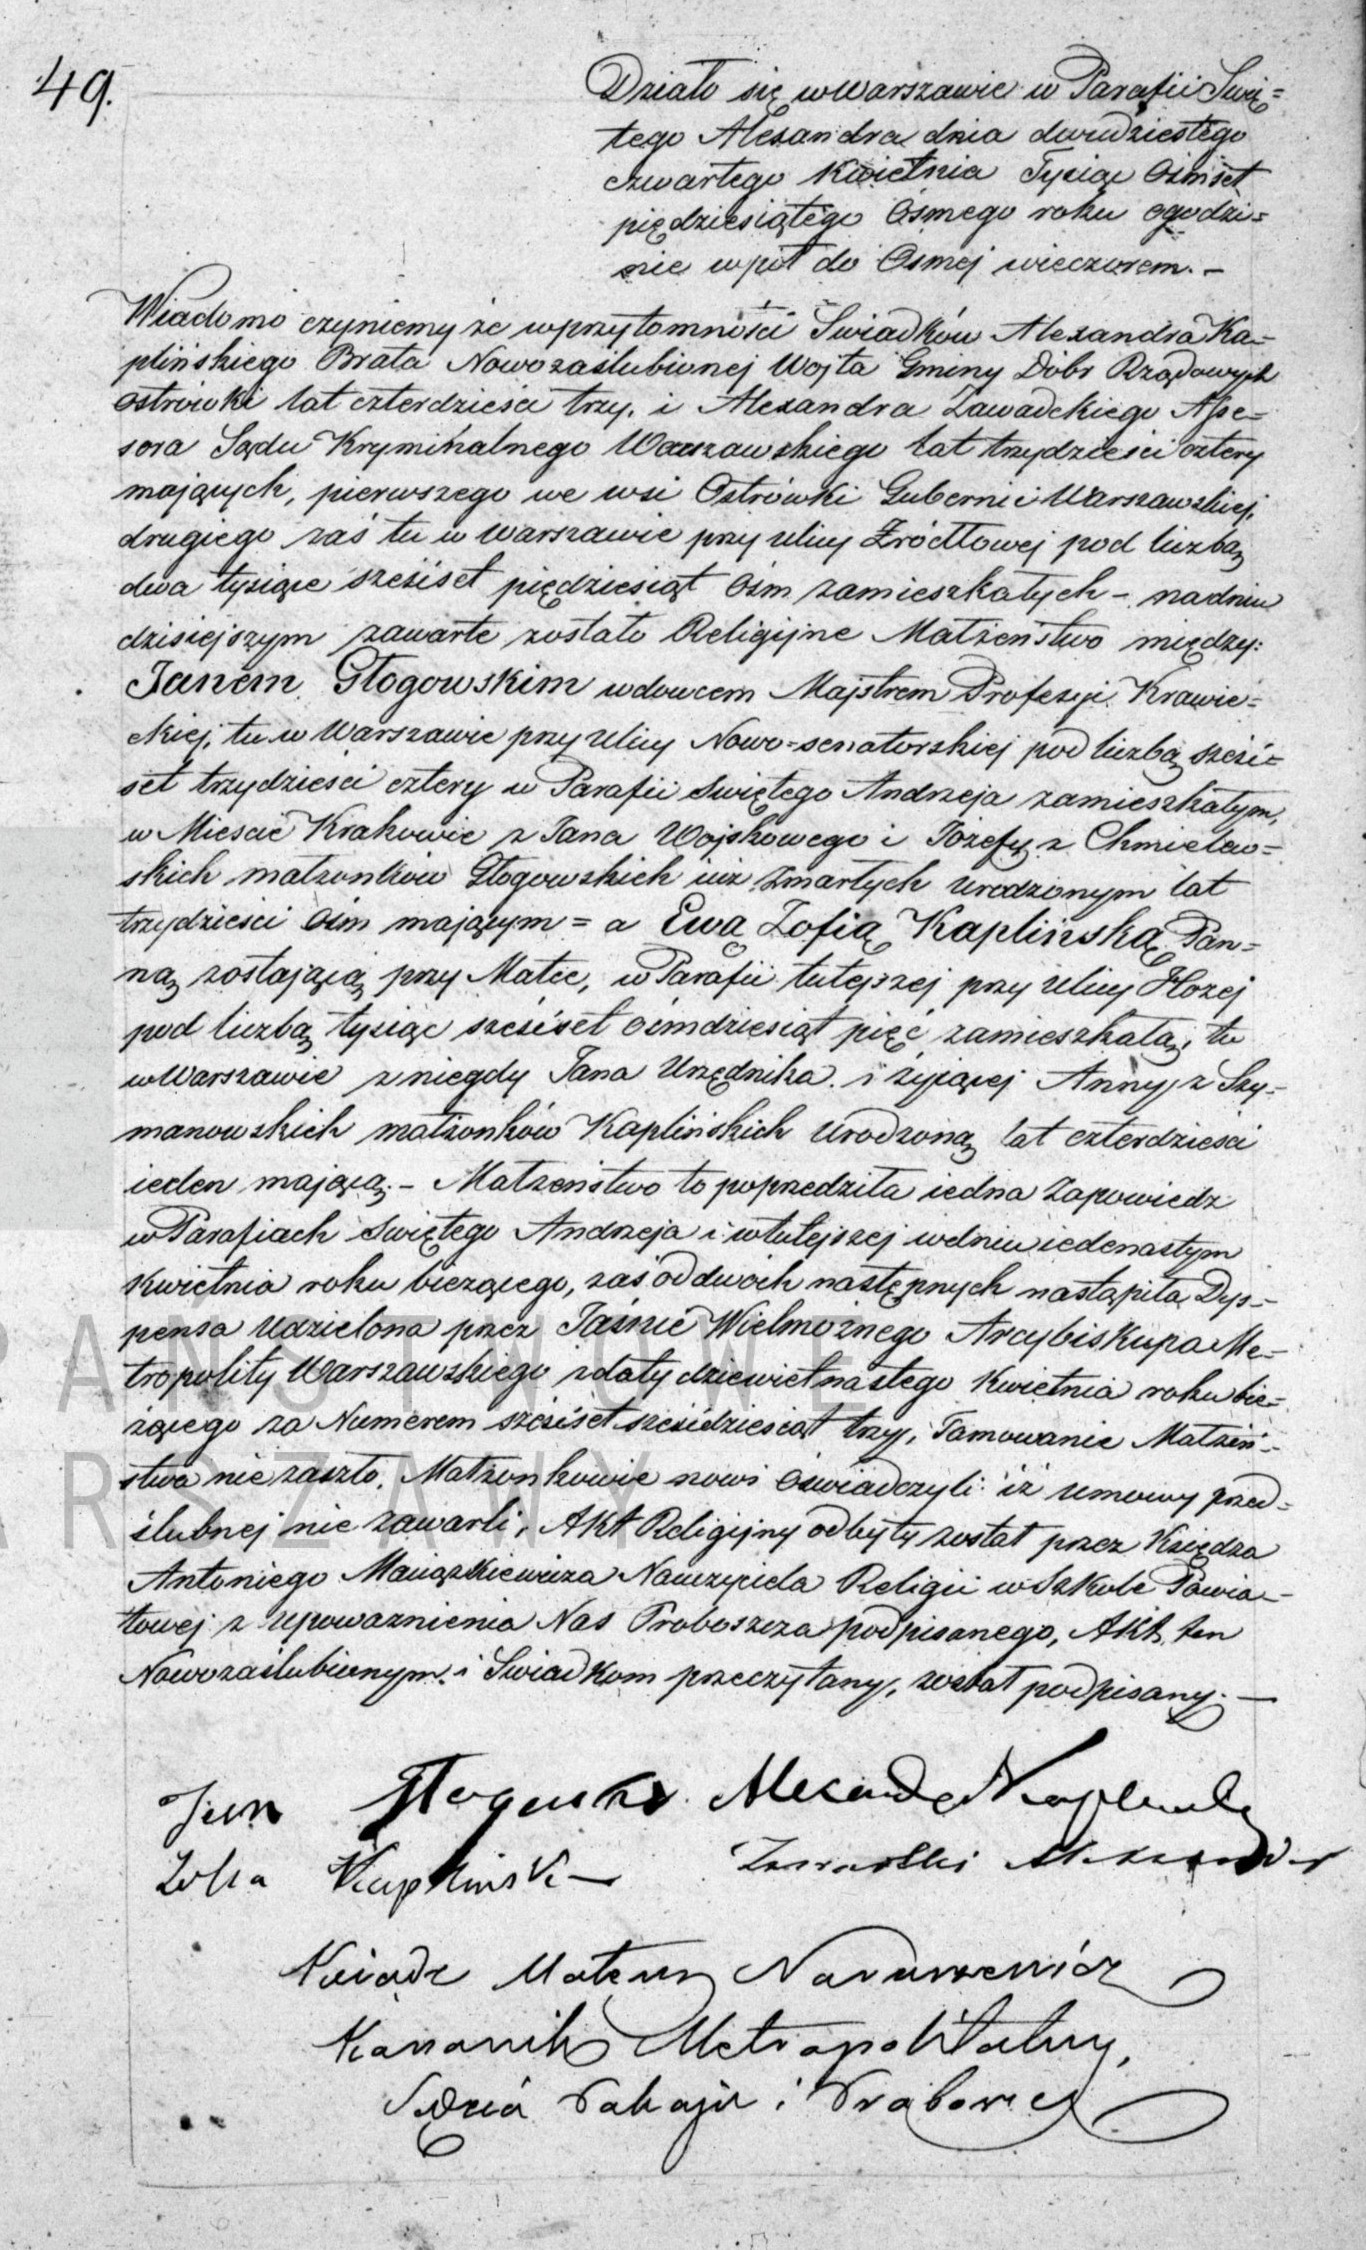 49.
Działo się w Warszawie w Parafii Świę=
tego Alexandra dnia dwudziestego
czwartego Kwietnia Tysiąc Ośmset
piędziesiątego Osmego roku o godzi=
nie wpół do Osmej wieczorem. –
Wiadomo czyniemy że w przytomności Swiadków Alexandra Ka=
plińskiego Brata Nowozaślubionej Wójta Gminy Dóbr Rządowych
Ostrówki lat czterdzieści trzy, i Alexandra Zawadzkiego Asse=
sora Sądu Kryminalnego Warszawskiego lat trzydzieści cztery
mających, pierwszego we wsi Ostrówki Gubernii Warszawskiej,
drugiego zaś tu w Warszawie przy ulicy Źródłowej pod liczbą
dwa tysiące sześćset piędziesiąt ośm zamieszkałych – na dniu
dzisiejszym zawarte zostało Religijne Małżeństwo między:
Janem Głogowskim wdowcem Majstrem Profesyi Krawie=
ckiej, tu w Warszawie przy ulicy Nowo=senatorskiej pod liczbą sześć=
set trzydzieści cztery w Parafii Swiętego Andrzeja zamieszkałym,
w Mieście Krakowie z Jana Wojskowego i Józefy z Chmielew=
skich małżonków Głogowskich już zmarłych urodzonym lat
trzydzieści ośm mającym = a Ewą Zofią Kaplińską Pan=
ną zostającą przy Matce, w Parafii tutejszej przy ulicy Hożej
pod liczbą tysiąc sześćset ośmdziesiąt pięć zamieszkałą, tu
w Warszawie z niegdy Jana Urzędnika i żyjącej Anny z Szy=
manowskich małżonków Kaplińskich urodzoną lat czterdzieści
ieden mającą. – Małżeństwo to poprzedziła iedna Zapowiedź
w Parafiach Swiętego Andrzeja i w tutejszej w dniu iedenastym
Kwietnia roku bieżącego, zaś od dwóch następnych nastąpiła Dys=
pensa udzielona przez Jaśnie Wielmożnego Arcybiskupa Me=
tropolity Warszawskiego z daty dziewietnastego Kwietnia roku bie=
żącego za Numerem sześćset sześćdziesiąt trzy, Tamowanie Małżeń=
stwa nie zaszło. Małżonkowie nowi oświadczyli iż umowy przed=
ślubnej nie zawarli, Akt Religijny odbyty został przez Księdza
Antoniego Nauczyciela Religii w Szkole Powia=
towej z upoważnienia Nas Proboszcza podpisanego, Akt ten
Nowozaślubionym i Swiadkom przeczytany, został podpisany. —
Jan Głogowski Alexander Kapliński
Zofia Kaplińska Zawadzki Alexander
Ksiądz Mateusz Naruszewicz
Kanonik Metropolitalny,
Sędzia Pokoju i Proboszcz
PAŃSTWOWE
ARSZAWY